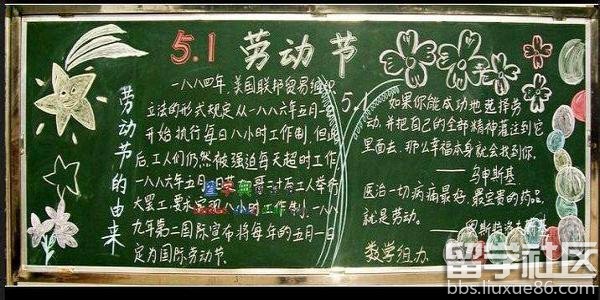 5.1 劳动节
劳动节的由来
一八八四年,美国联邦贸易组织
立法的形式规定从一八八六年五月一日
开始执行每日八小时工作制,但此
后工人们仍然被强迫每天超时工作
一八八六年五月一日芝加哥二十五工人举行
大罢工,要求实现八小时工作制。一八八
九年第二国际宣布将每年的五月一日
定为国际劳动节。
5.1
如果你能成功地选择劳
动,并把自己的全部精神灌注到它
里面去,那么幸福本身就会找到你。
——马申斯基
医治一切病痛最好,最宝贵的药品,
就是劳动。
——奥斯特洛夫斯基
数学组办
留学社区
bbs.liuxue86.com